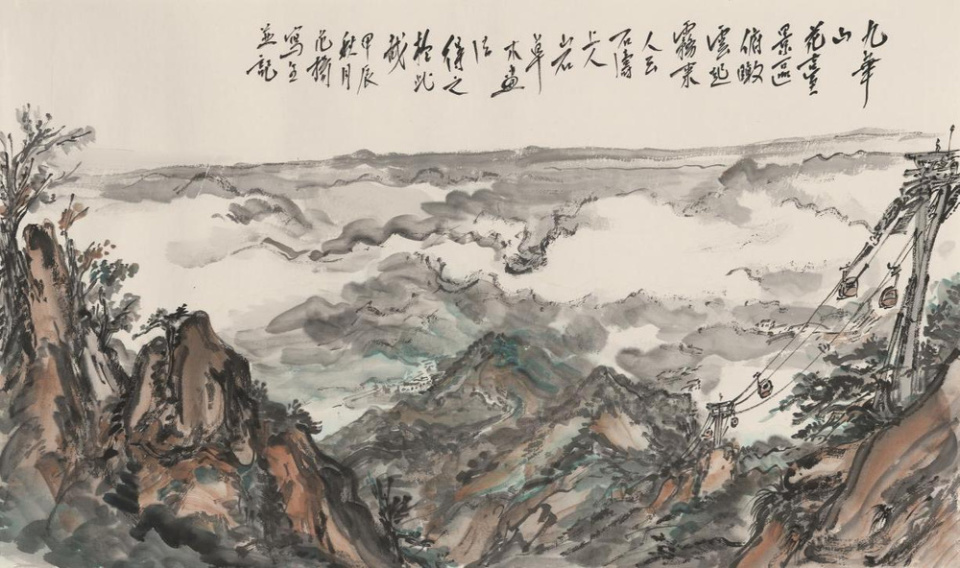 九華
山
花臺
景區
俯瞰
雲起
霧来
人云
石濤
上人
山石
草
木畫
法
得之
於此
哉
甲辰
秋月
范揚
寫生
並記